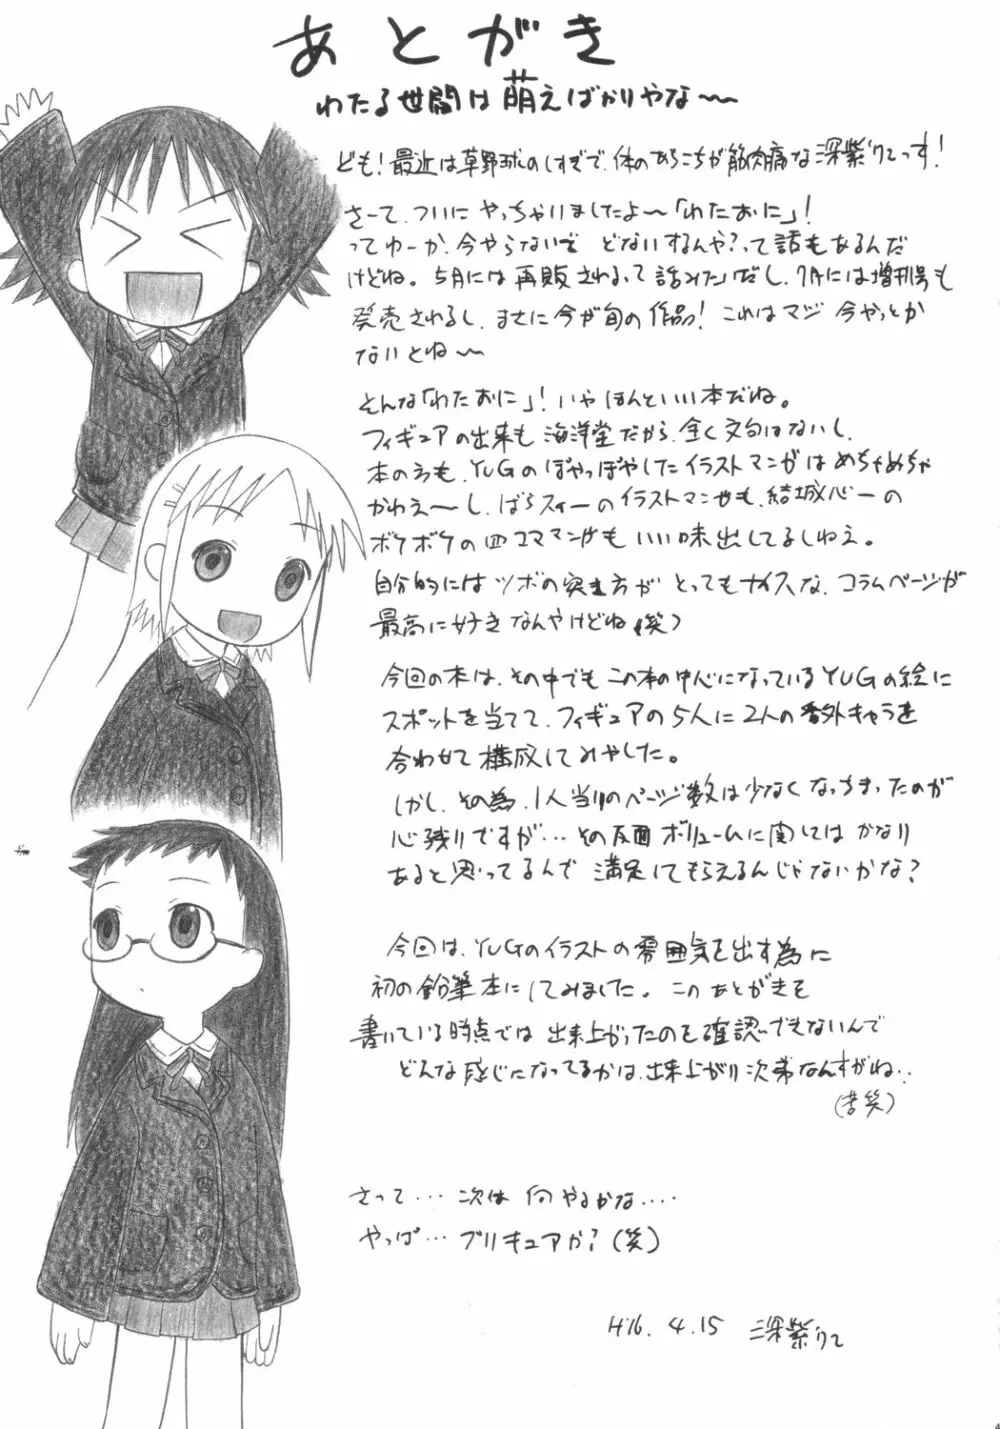 あとがき
わたる世間は萌えばかりやな〜
ども!最近は草野球のしすぎで、体のあちこちが筋肉痛な深紫りこっす!
さーて、ついにやっちゃいましたよ〜「わたおに」!
ってゆーか、今やらないでどないするんや?って話もあるんだ
けどね。5月には再販されるって話みたいだし、7月には増刊号も
発売されるし、まさに今が旬の作品!これはマジ今やっとか
ないとね〜
そんな「わたおに」!いやほんといい本だね。
フィギュアの出来も海洋堂だから、全く文句はないし、
本の方も、YUGのぽやっぽやしたイラストマンガはめちゃめちゃ
かわえ〜し、ばらスィーのイラストマンガも、結城心一の
ボケボケの四コママンガもいい味出してるしねえ。
自分的にはツボの突き方がとってもナイスな、コラムページが
最高に好きなんやけどね(笑)
今回の本は、その中でもこの本の中心になっているYUGの絵に
スポットを当てて、フィギュアの5人に2人の番外キャラを
合わせて構成してみやした。
しかし、その為、1人当りのページ数は少なくなっちまったのが
心残りですが…その反面ボリュームに関してはかなり
あると思ってるんで満足してもらえるんじゃないかな?
今回は、YUGのイラストの雰囲気を出す為に
初の鉛筆本にしてみました。このあとがきを
書いている時点では出来上がったのを確認できないんで
どんな感じになってるかは、出来上がり次第なんすがね‥
(苦笑)
さって…次は何やるかな‥‥
やっぱ…プリキュアか?(笑)
H16.4.15 深紫りこ